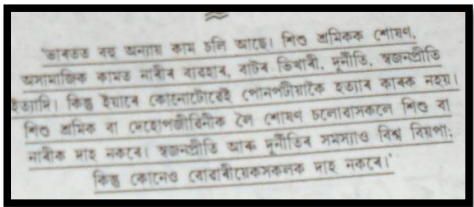 'ভাৰতত বহু অন্যায় কাম চলি আছে। শিশু শ্ৰমিকক শোষণ,
অসামাজিক কামত নাৰীৰ ব্যৱহাৰ, বাটৰ ভিখাৰী, দুৰ্নীতি, স্বজনপ্ৰীতি
ইত্যাদি। কিন্তু ইয়াৰে কোনোটোৱেই পোনপটীয়াকৈ হত্যাৰ কাৰক নহয়।
শিশু শ্ৰমিক বা দেহোপজীৱিনীক লৈ শোষণ চলোৱাসকলে শিশু বা
নাৰীক দাহ নকৰে। স্বজনপ্ৰীতি আৰু দুৰ্নীতিৰ সমস্যাও বিশ্ব বিয়পা;
কিন্তু কোনেও বোৱাৰীয়েকসকলক দাহ নকৰে।'